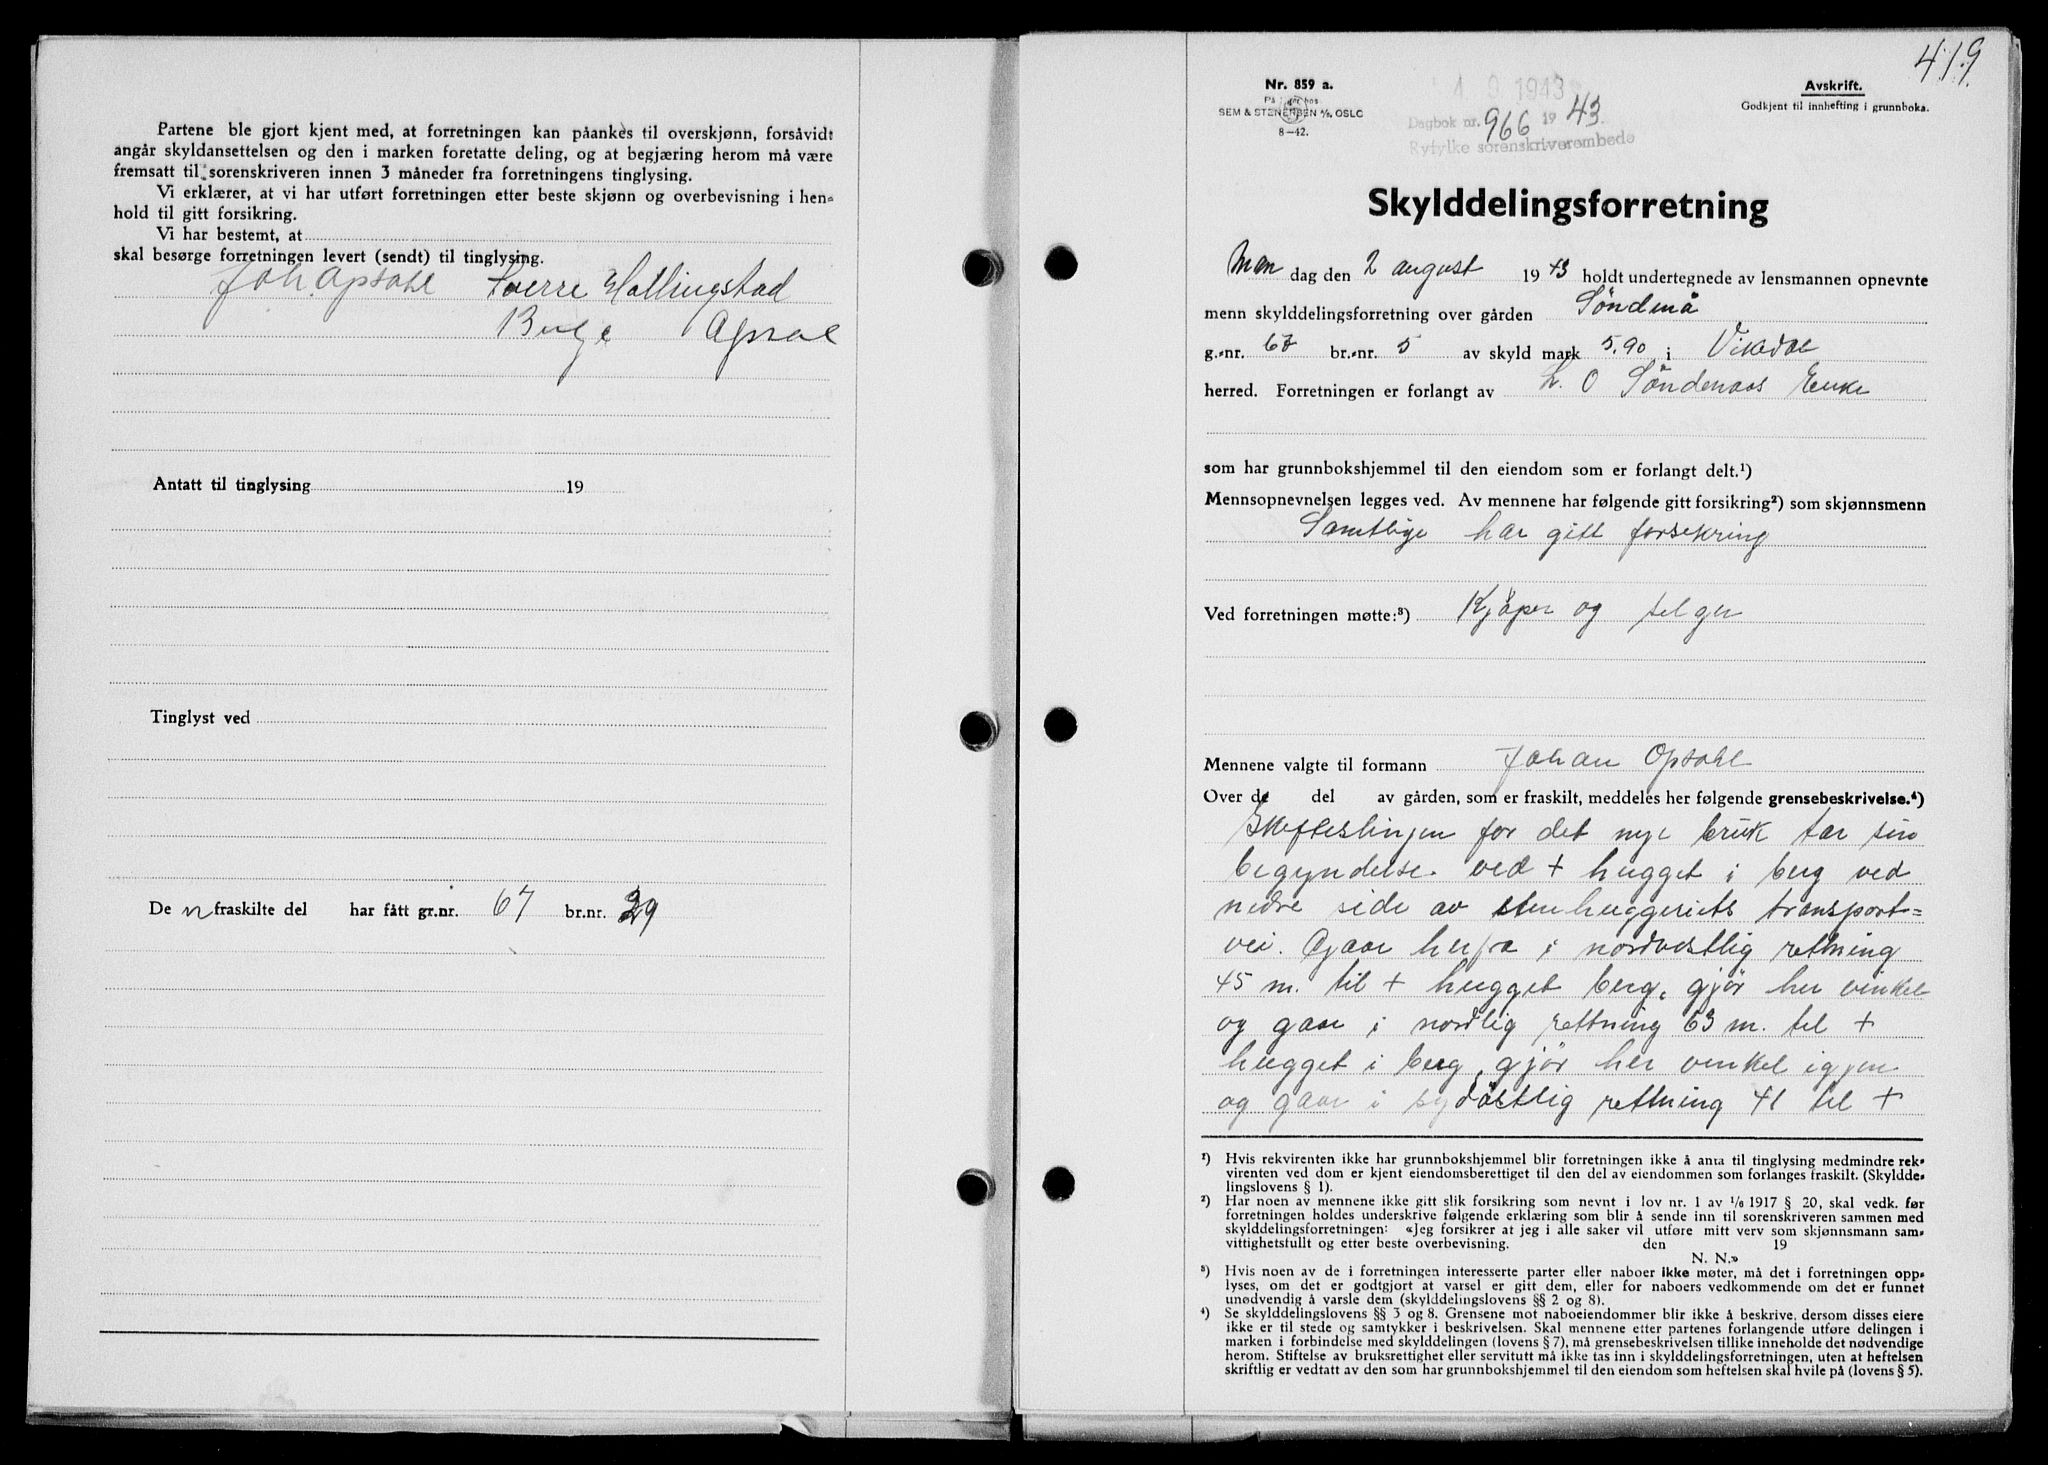 Partene ble gjort kjent med, at forretningen kan påankes til overskjønn, forsåvidt
angår skyldansettelsen og den i marken foretatte deling, og at begjæring herom må være
fremsatt til sorenskriveren innen 3 måneder fra forretningens tinglysing.
Vi erklærer, at vi har utført forretningen etter beste skjønn og overbevisning i hen=
hold til gitt forsikring.
Vi har bestemt, at
skal besørge forretningen levert (sendt) til tinglysing.
Joh. Opsahl Sverre Hallingstad
Birge
Antatt til tinglysing 19
Tinglyst ved
De n fraskilte del har fått gr.nr. 67 br.nr. 39
419
Nr. 859 a.
SEM & STENERSEN A/S, OSLO
8—42.
1 9 1943
Dagbok nr. 966 1943.
Ryfylke sorenskriverembede
Avskrift.
Godkjent til innhefting i grunnboka.
Skylddelingsforretning
Man dag den 2 august 1943 holdt undertegnede av lensmannen opnevnte
menn skylddelingsforretning over gården Söndenå
g.=nr. 67 br.=nr. 5 av skyld mark 5,90 i Vikedal
herred. Forretningen er forlangt av L. O Söndenaas Enke
som har grunnbokshjemmel til den eiendom som er forlangt delt.¹)
Mennsopnevnelsen legges ved. Av mennene har følgende gitt forsikring²) som skjønnsmenn
Samtlige har gitt forsekring
Ved forretningen møtte:³) Kjöper og selger
Mennene valgte til formann Johan Opsahl
Over de del av gården, som er fraskilt, meddeles her følgende grensebeskrivelse.⁴)
Skifteslinjen for det nye bruk tar sin
begyndelse ved + hugget i berg ved
nedre side av stenhuggeriets transport=
vei. Gaar herfra i nordvestlig rettning
45 m. til + hugget berg, gjör her vinkel
og gaar i nordlig rettning 63 m. til +
hugget i berg, gjör her vinkel igjen
og gaar i sydöstlig rettning 41 til +
¹) Hvis rekvirenten ikke har grunnbokshjemmel blir forretningen ikke å anta til tinglysing medmindre rek=
virenten ved dom er kjent eiendomsberettiget til den del av eiendommen som forlanges fraskilt. (Skyldde=
lingslovens § 1).
²) Har noen av mennene ikke gitt slik forsikring som nevnt i lov nr. 1 av 1/6 1917 § 20, skal vedk. før
forretningen holdes underskrive følgende erklæring som blir å sende inn til sorenskriveren sammen med
skylddelingsforretningen: «Jeg forsikrer at jeg i alle saker vil utføre mitt verv som skjønnsmann sam=
vittighetsfullt og etter beste overbevisning. den 19
N. N.»
³) Hvis noen av de i forretningen interesserte parter eller naboer ikke møter, må det i forretningen opp=
lyses, om det er godtgjort at varsel er gitt dem, eller for naboers vedkommende om det er funnet
unødvendig å varsle dem (skylddelingslovens §§ 2 og 8).
⁴) Se skylddelingslovens §§ 3 og 8. Grensene mot naboeiendommer blir ikke å beskrive, dersom disses eiere
ikke er til stede og samtykker i beskrivelsen. Skal mennene etter partenes forlangende utføre delingen i
marken i forbindelse med skylddelingen (lovens § 7), må grensebeskrivelsen tillike inneholde det nødvendige
herom. Stiftelse av bruksrettighet eller servitutt må ikke tas inn i skylddelingsforretningen, uten at heftelsen
skriftlig er vedtatt av den som har grunnbokshjemmel til den eiendom som heftelsen skal hvile på (lovens § 5).